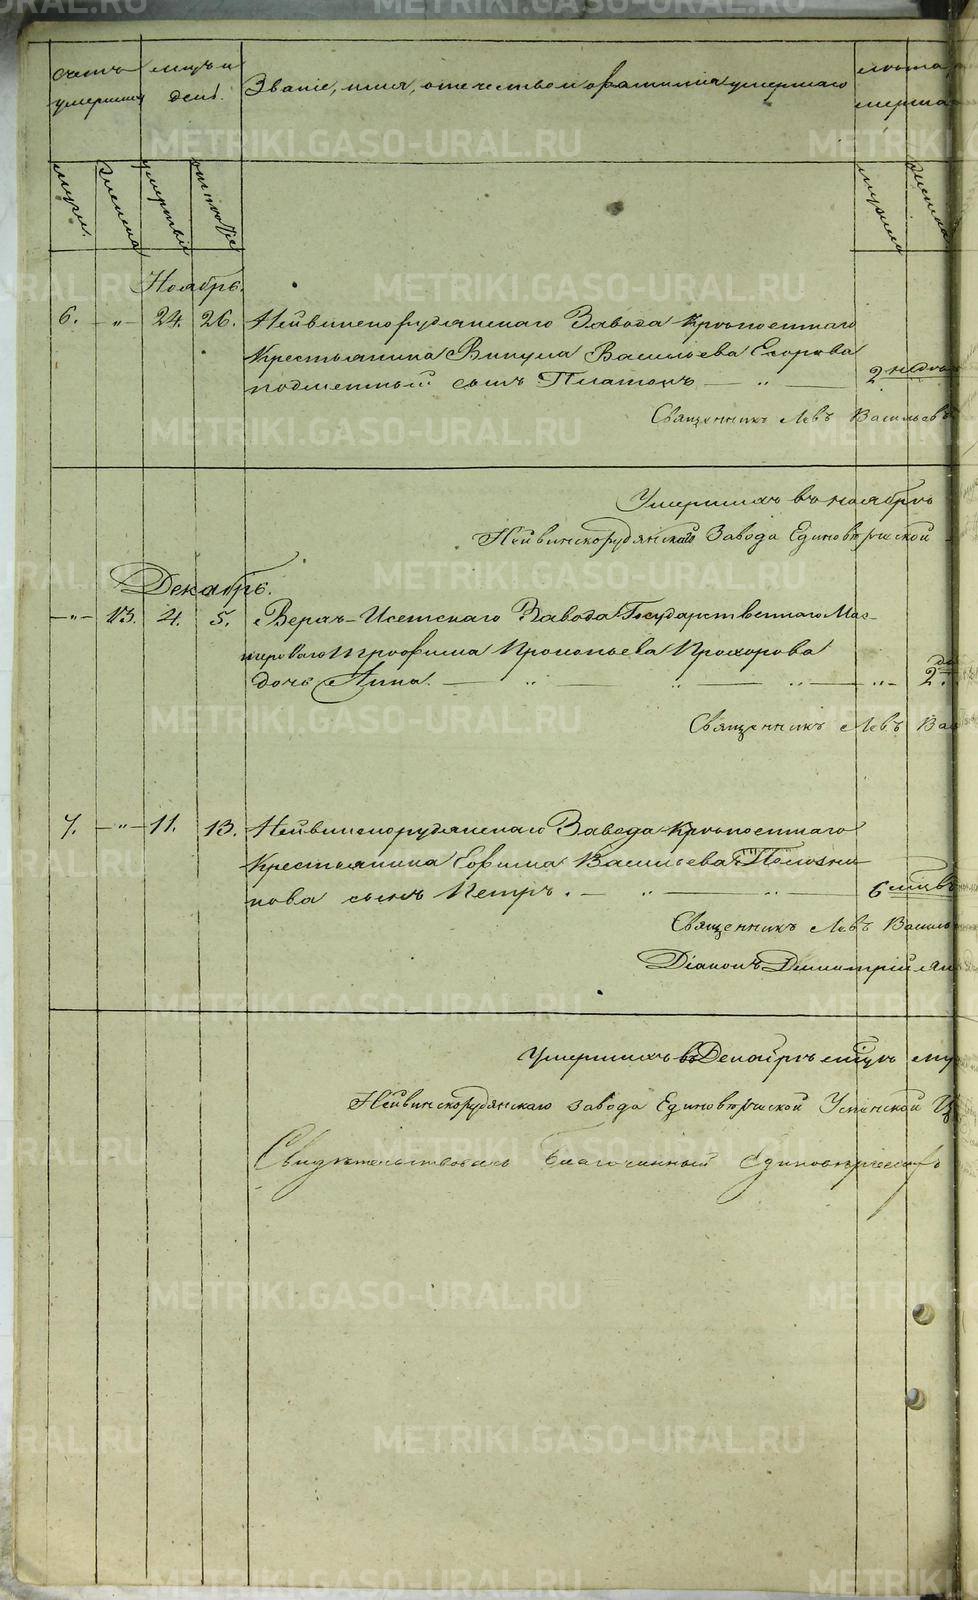 Счетъ умершихъ
мѣсяцъ и день.
Званіе, имя, отечество и фамилія умершаго
лѣта
мужеска
женска
смерти
погребенія
мужеска
женска
Ноябрь.
6. " 24. 26. Нейвинскорудянскаго Завода Крѣпостнаго
Крестьянина Викула Васильева Егорова
подменный сынъ Платонъ — " — 2 недѣл
Священникъ Левъ Васильевъ
Умершихъ въ ноябрѣ
Нейвинскорудянскаго Завода Единовѣрческой
Декабрь.
" 13. 4. 5. Верхъ-Исетскаго Завода Государственнаго Мас-
тероваго Трофима Прокопьева Прохорова
дочь Анна. — " — " — " — " — 2.
Священникъ Левъ Вас
7. " 11. 13. Нейвинскорудянскаго Завода Крѣпостнаго
Крестьянина Ефима Васильева Полозни-
кова сынъ Петръ. — " — " — 6 мѣсяцъ
Священникъ Левъ Василь
Діаконъ Димитрій
Умершихъ въ Декабрѣ мѣсяцѣ му
Нейвинскорудянскаго завода Единовѣрческой Успенской Ц
Свидѣтельствовалъ Благочинный Единовѣрческ
METRIKI.GASO-URAL.RU